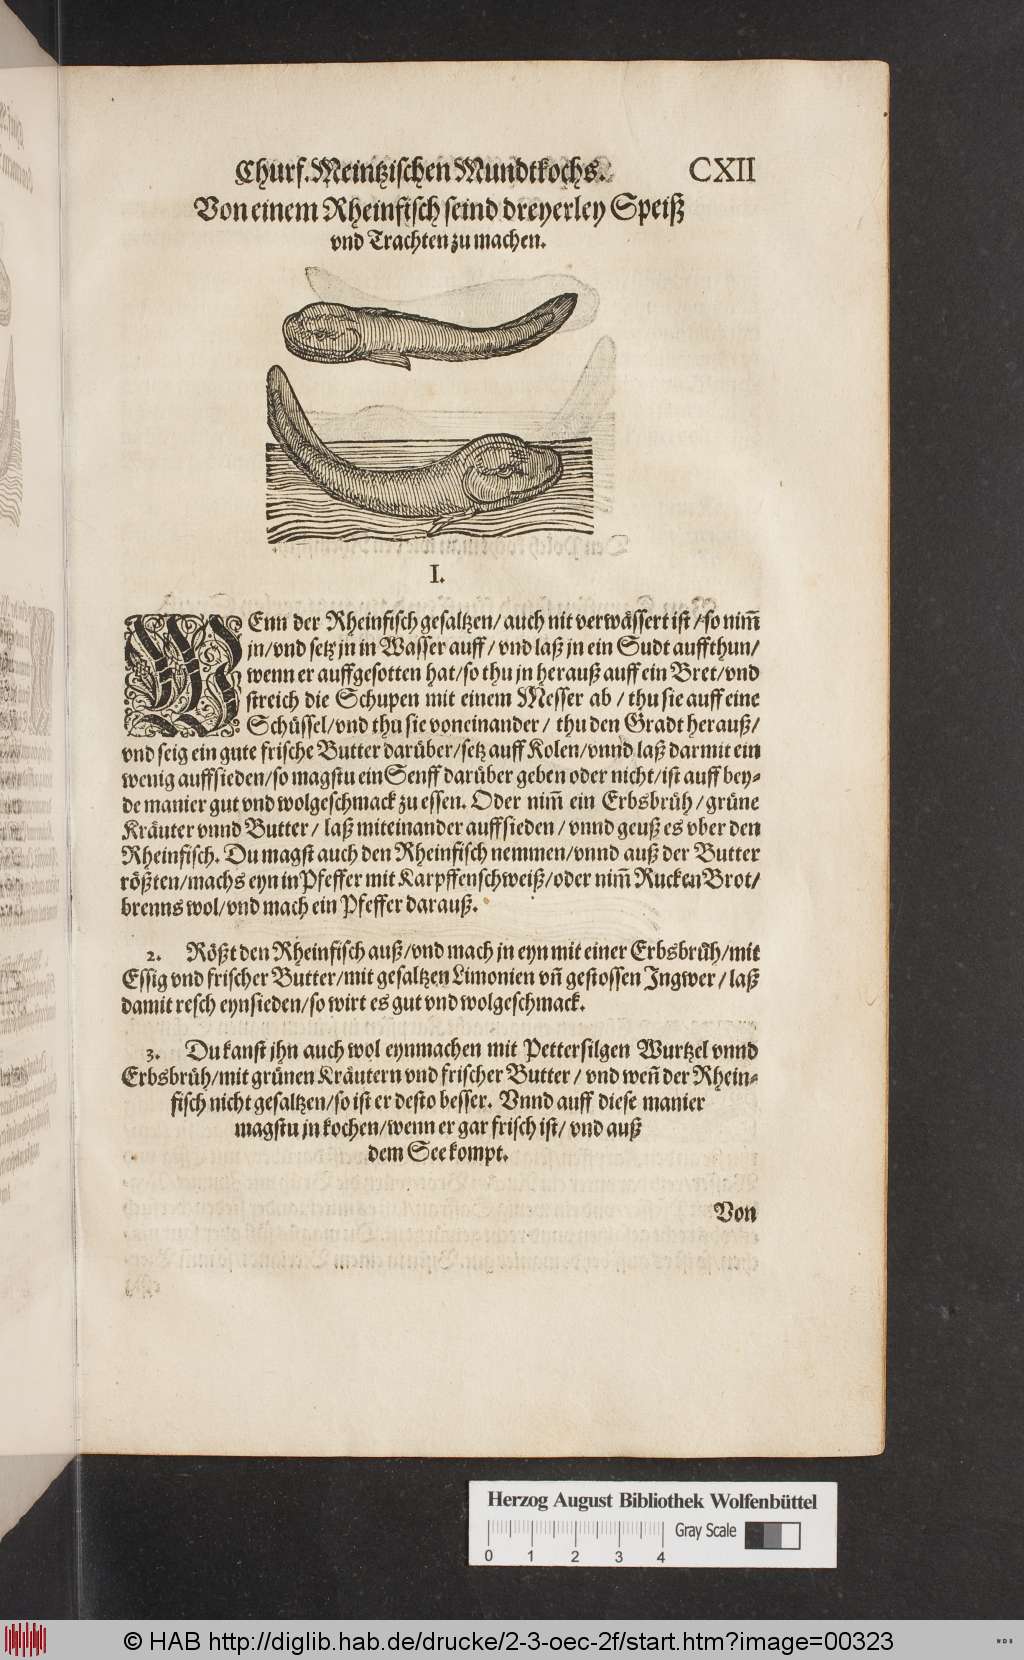 Churf. Meintzischen Mundtkochs. CXII
Von einem Rheinfisch seind dreyerley Speiß
vnd Trachten zu machen.
I.
WEnn der Rheinfisch gesaltzen/ auch nit verwässert ist/ so nim̃
jn/ vnd setz jn in Wasser auff/ vnd laß jn ein Sudt auffthun/
wenn er auffgesotten hat/ so thu jn herauß auff ein Bret/ vnd
streich die Schupen mit einem Messer ab/ thu sie auff eine
Schüssel/ vnd thu sie voneinander/ thu den Gradt herauß/
vnd seig ein gute frische Butter darüber/ setz auff Kolen/ vnnd laß darmit ein
wenig auffsieden/ so magstu ein Senff darüber geben oder nicht/ ist auff bey-
de manier gut vnd wolgeschmack zu essen. Oder nim̃ ein Erbsbrüh/ grüne
Kräuter vnnd Butter/ laß miteinander auffsieden/ vnnd geuß es vber den
Rheinfisch. Du magst auch den Rheinfisch nemmen/ vnnd auß der Butter
rößten/ machs eyn in Pfeffer mit Karpffenschweiß/ oder nim̃ Rucken Brot/
brenns wol/ vnd mach ein Pfeffer darauß.
2. Rößt den Rheinfisch auß/ vnd mach jn eyn mit einer Erbsbrüh/ mit
Essig vnd frischer Butter/ mit gesaltzen Limonien vñ gestossen Jngwer/ laß
damit resch eynsieden/ so wirt es gut vnd wolgeschmack.
3. Du kanst jhn auch wol eynmachen mit Pettersilgen Wurtzel vnnd
Erbsbrüh/ mit grünen Kräutern vnd frischer Butter/ vnd weñ der Rhein-
fisch nicht gesaltzen/ so ist er desto besser. Vnnd auff diese manier
magstu jn kochen/ wenn er gar frisch ist/ vnd auß
dem See kompt.
Von
Herzog August Bibliothek Wolfenbüttel
Gray Scale
0 1 2 3 4
© HAB http://diglib.hab.de/drucke/2-3-oec-2f/start.htm?image=00323